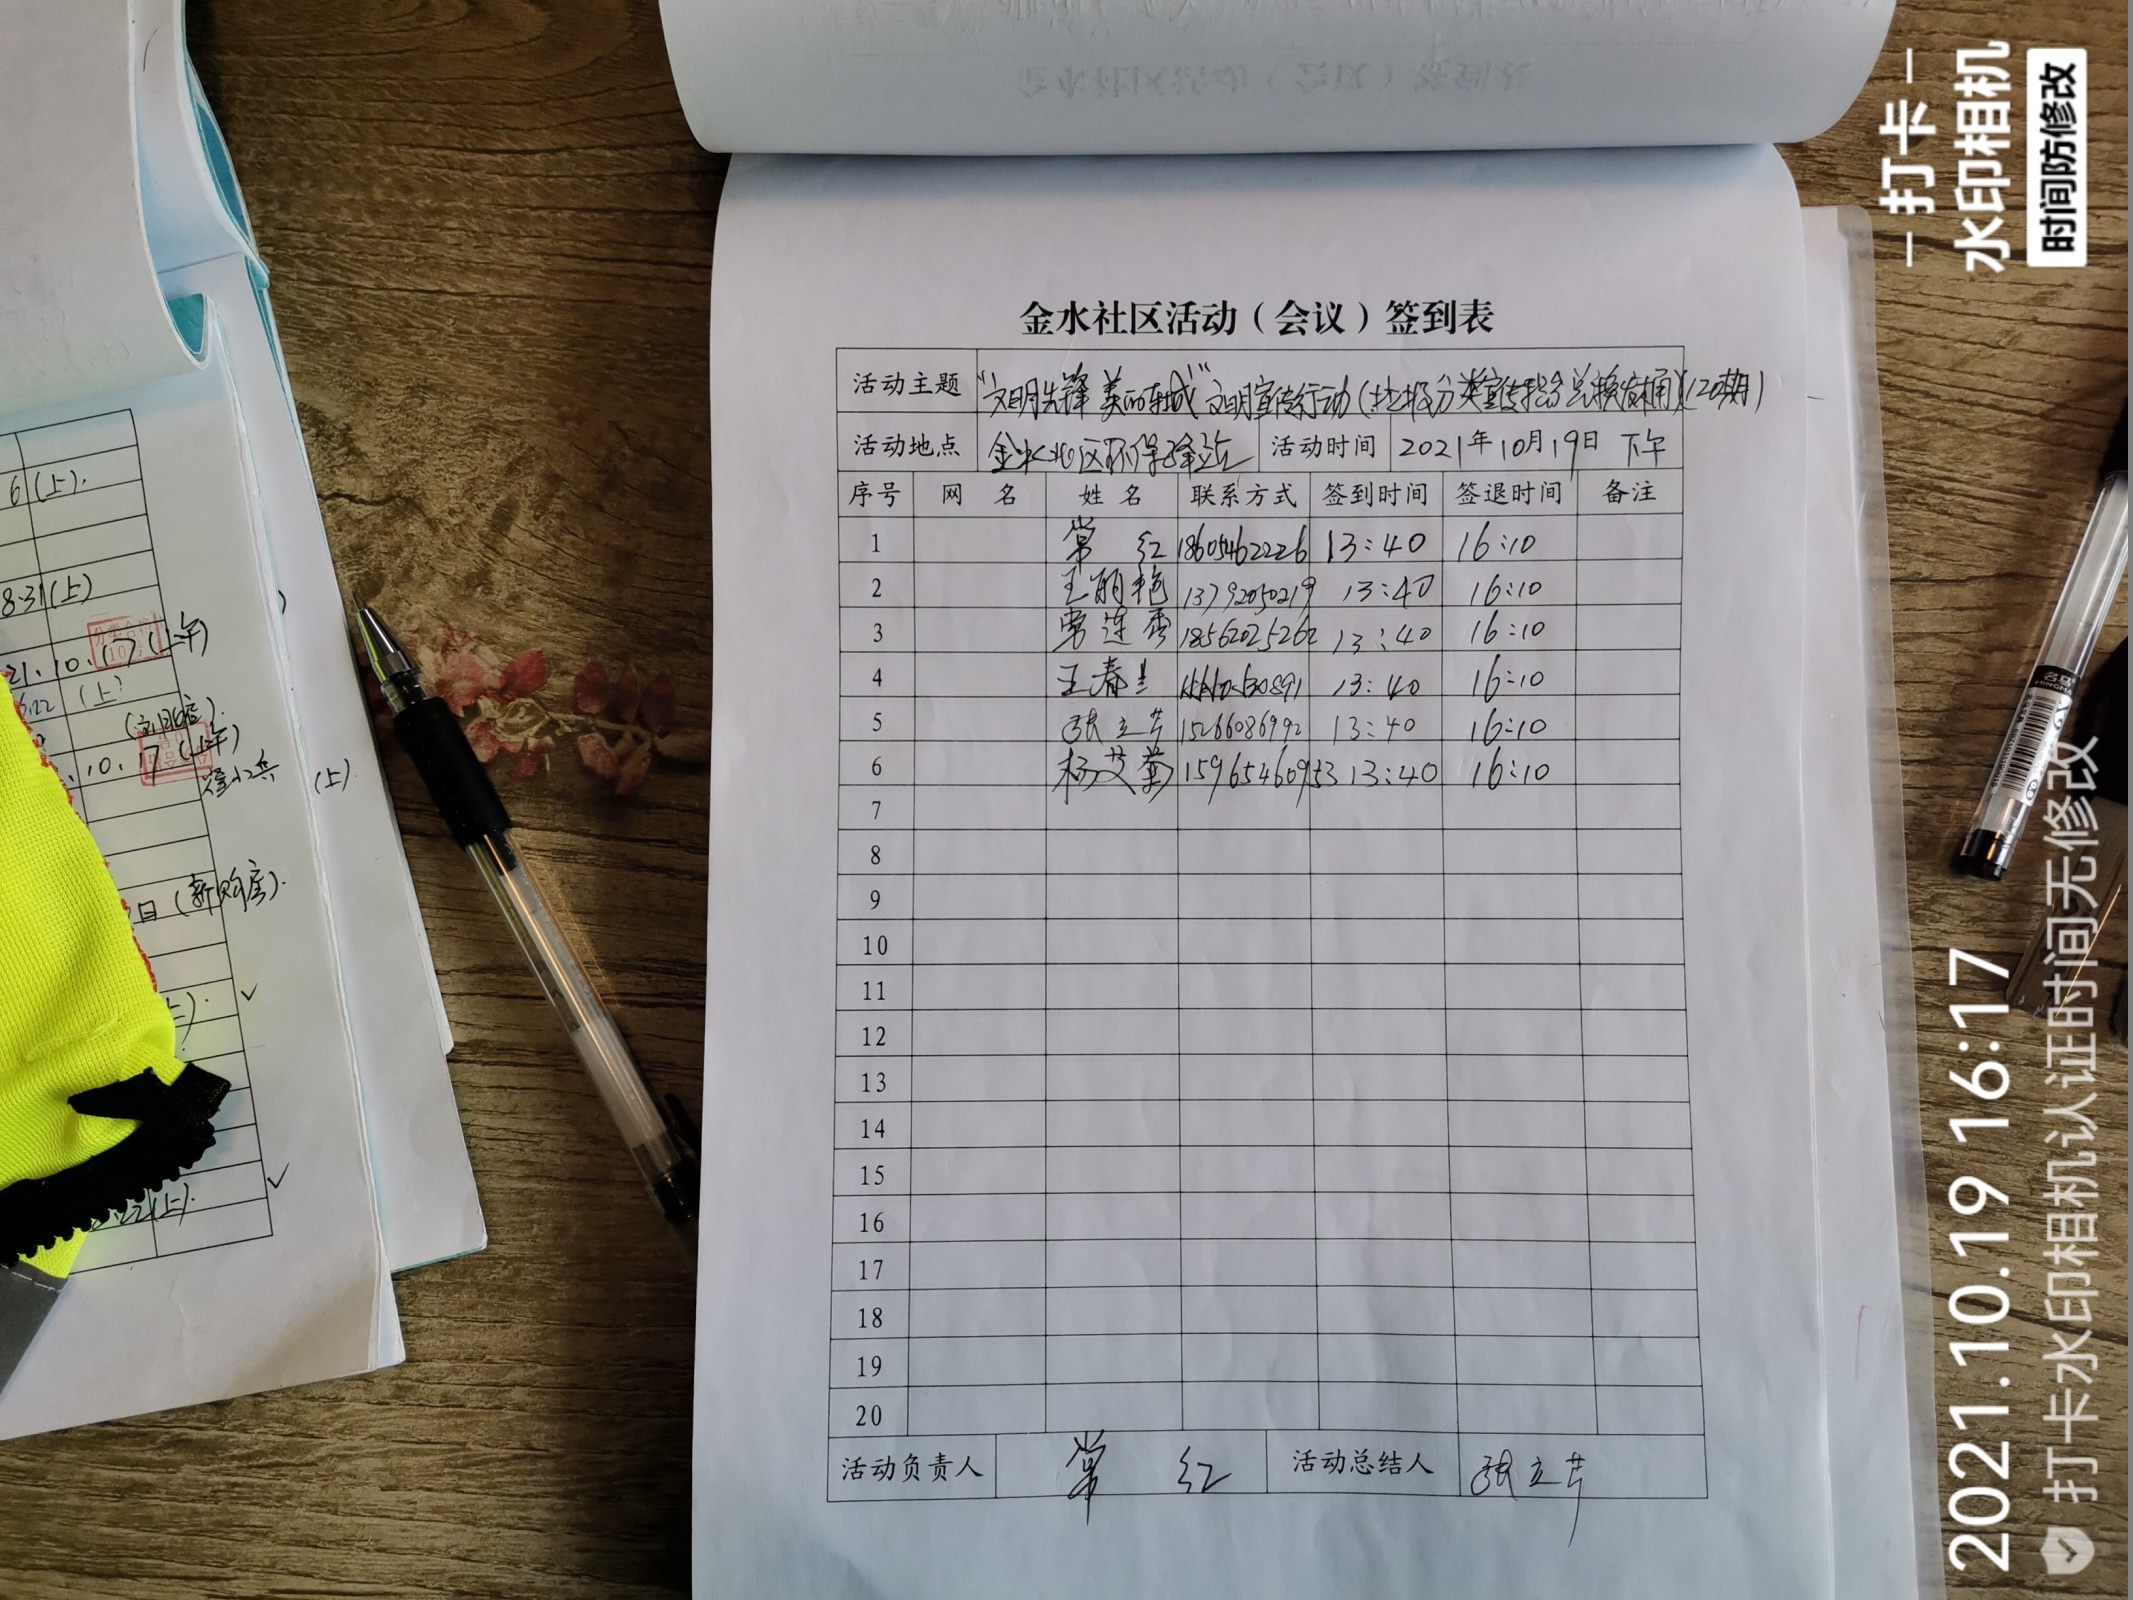 金水社区活动（会议）签到表
活动主题 "文明先锋 美丽东城"文明宣传行动(垃圾分类宣传积分兑换垃圾桶)(20期)
活动地点 金水北区环保驿站 活动时间 2021年10月19日 下午
序号 网 名 姓 名 联系方式 签到时间 签退时间 备注
1 常 红 18605462226 13:40 16:10
2 王丽艳 13792050219 13:40 16:10
3 常连香 18562025262 13:40 16:10
4 王春兰 13:40 16:10
5 张立芹 15266086992 13:40 16:10
6 杨艾英 15965460953 13:40 16:10
7
8
9
10
11
12
13
14
15
16
17
18
19
20
活动负责人 常 红 活动总结人 张立芹
6(上).
8.31(上)
21.10.17(上午)
(上)
.10.17(上午)
(上)
日(新购房).
.22(上).
打卡
水印相机
时间防修改
2021.10.19 16:17
打卡水印相机认证时间无修改